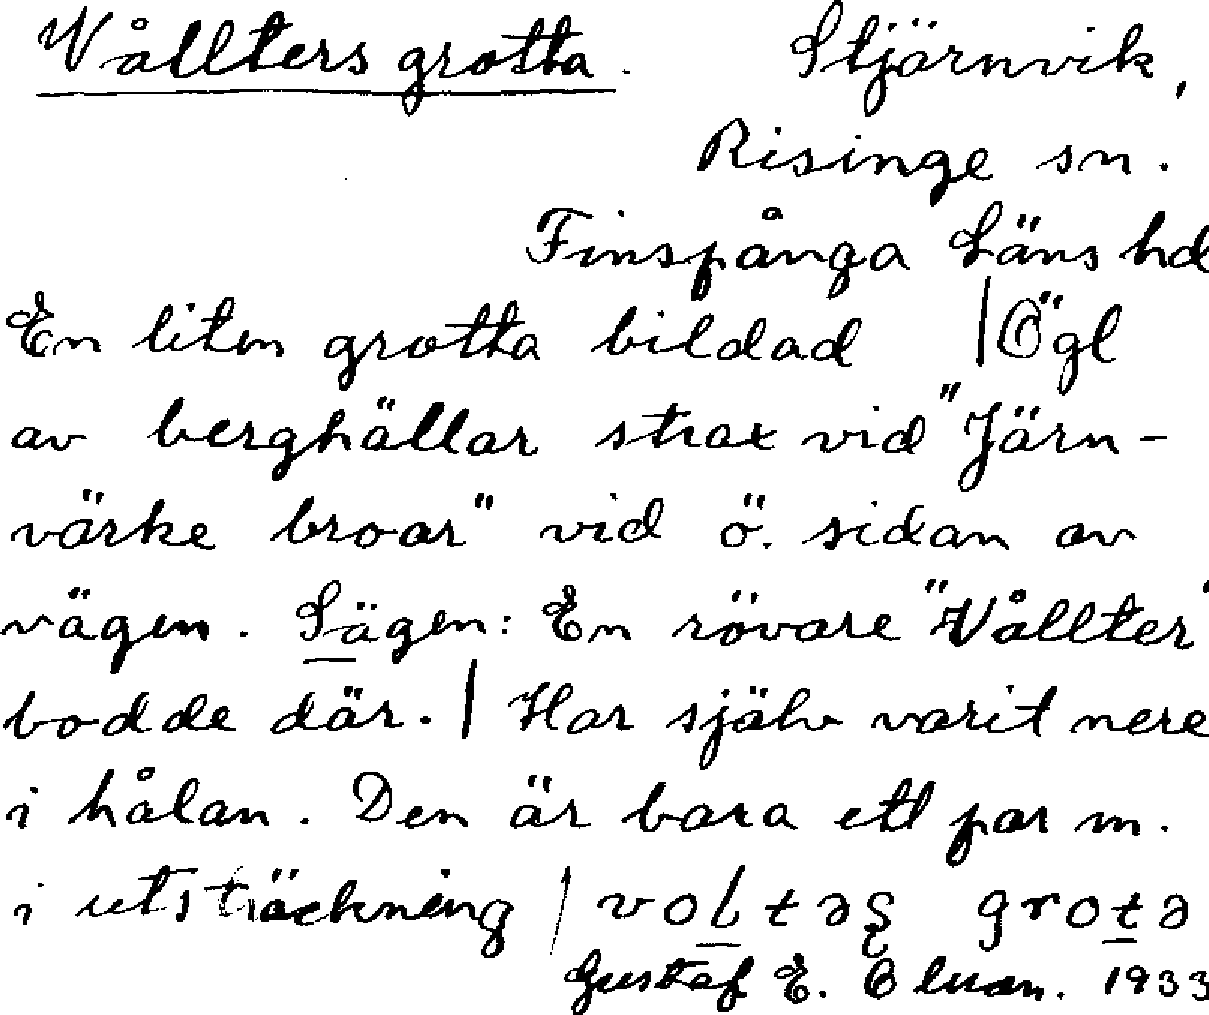 Vållters grotta. Stjärnvik,
Risinge sn.
Finspånga Läns hd
En liten grotta bildad | Ögl
av berghällar strax vid "Järn-
värke broar" vid ö. sidan av
vägen. Sägen: En rövare "Vållter"
bodde där. | Har själv varit nere
i hålan. Den är bara ett par m.
i utsträckning | grotə
Gustaf E. 1933